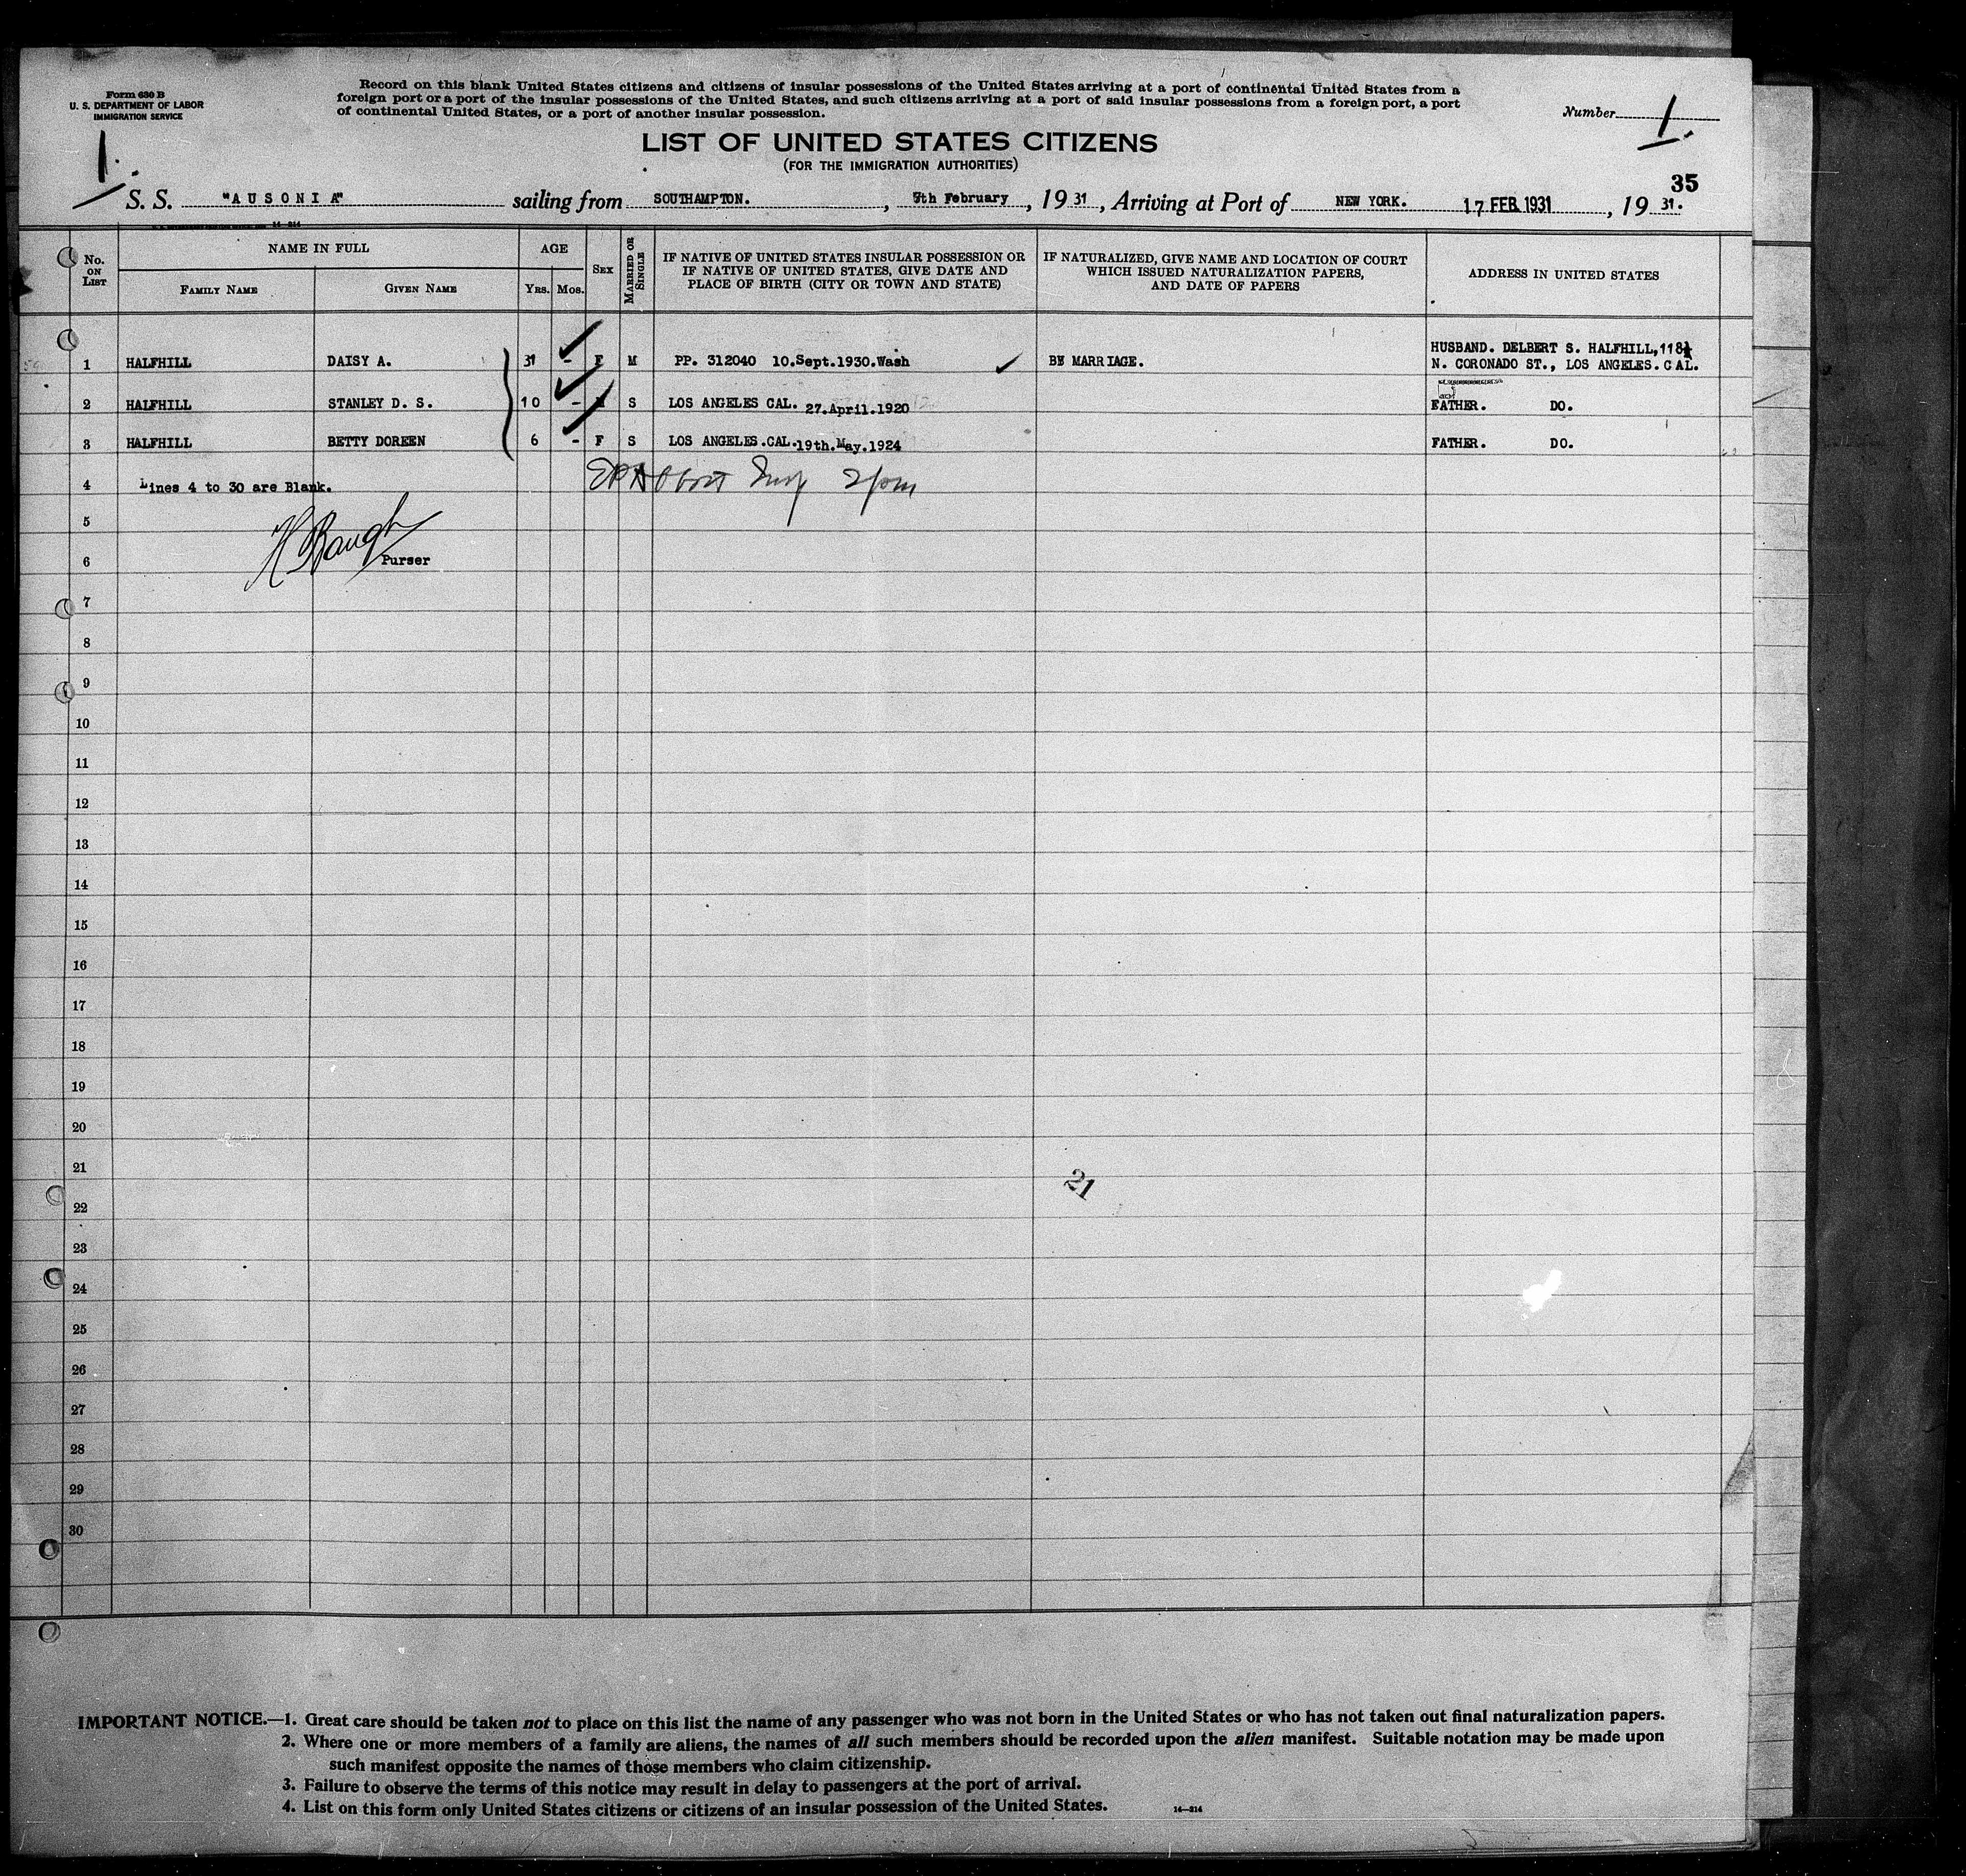 Form 630 B
U. S. DEPARTMENT OF LABOR
IMMIGRATION SERVICE
Record on this blank United States citizens and citizens of insular possessions of the United States arriving at a port of continental United States from a
foreign port or a port of the insular possessions of the United States, and such citizens arriving at a port of said insular possessions from a foreign port, a port
of continental United States, or a port of another insular possession.
Number 1.
1.
LIST OF UNITED STATES CITIZENS
(FOR THE IMMIGRATION AUTHORITIES)
35
S. S. "AUSONIA" sailing from SOUTHAMPTON. , 5th February , 19 31 , Arriving at Port of NEW YORK. 17 FEB 1931 , 19 31.
No. ON LIST
NAME IN FULL
FAMILY NAME GIVEN NAME
AGE
YRS. MOS.
SEX
MARRIED OR SINGLE
IF NATIVE OF UNITED STATES INSULAR POSSESSION OR
IF NATIVE OF UNITED STATES, GIVE DATE AND
PLACE OF BIRTH (CITY OR TOWN AND STATE)
IF NATURALIZED, GIVE NAME AND LOCATION OF COURT
WHICH ISSUED NATURALIZATION PAPERS,
AND DATE OF PAPERS
ADDRESS IN UNITED STATES
1 HALFHILL DAISY A. 31 - F M PP. 312040 10.Sept.1930.Wash BY MARRIAGE. HUSBAND. DELBERT S. HALFHILL, 118½
N. CORONADO ST., LOS ANGELES. CAL.
2 HALFHILL STANLEY D. S. 10 - M S LOS ANGELES CAL. 27.April.1920 FATHER. DO.
3 HALFHILL BETTY DOREEN 6 - F S LOS ANGELES.CAL. 19th.May.1924 FATHER. DO.
4 Lines 4 to 30 are Blank.
5
H Baugh
6 Purser
7
8
9
10
11
12
13
14
15
16
17
18
19
20
21
21
22
23
24
25
26
27
28
29
30
IMPORTANT NOTICE.—1. Great care should be taken not to place on this list the name of any passenger who was not born in the United States or who has not taken out final naturalization papers.
2. Where one or more members of a family are aliens, the names of all such members should be recorded upon the alien manifest. Suitable notation may be made upon
such manifest opposite the names of those members who claim citizenship.
3. Failure to observe the terms of this notice may result in delay to passengers at the port of arrival.
4. List on this form only United States citizens or citizens of an insular possession of the United States.
14—214